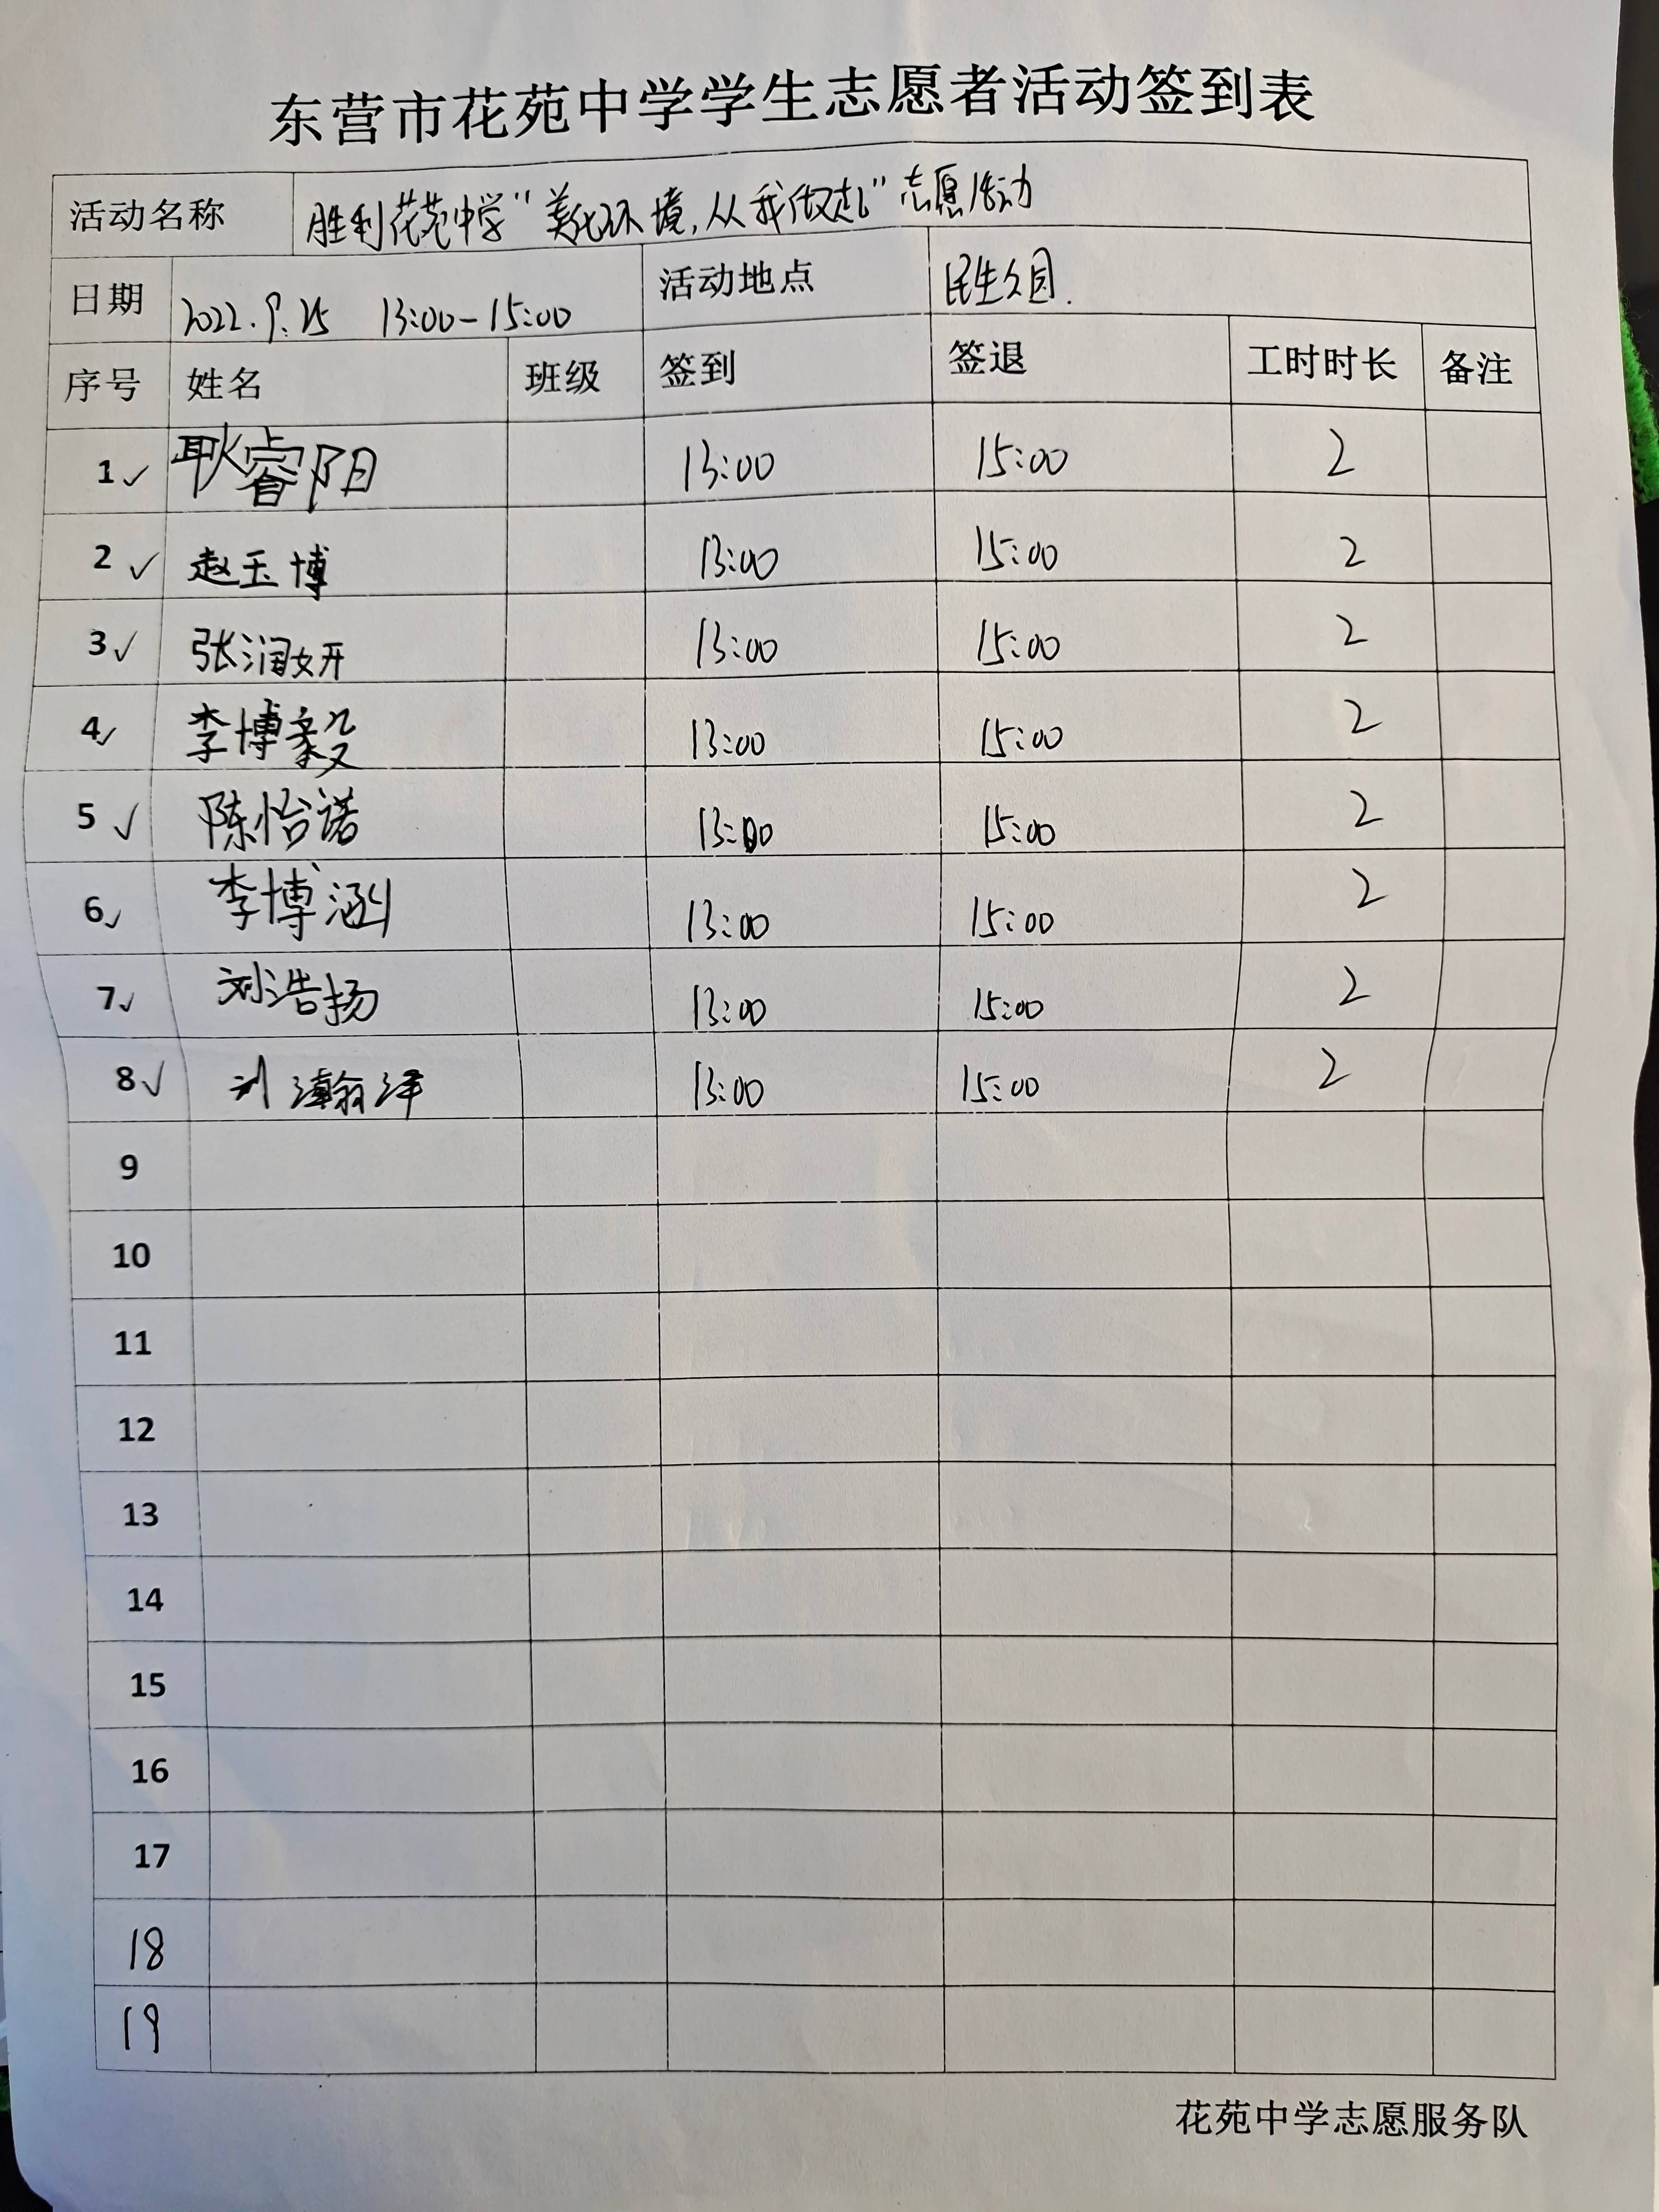 东营市花苑中学学生志愿者活动签到表
活动名称 胜利花苑中学"美化环境,从我做起"志愿活动
日期 2022.9.25 13:00-15:00 活动地点 民生公园.
序号 姓名 班级 签到 签退 工时时长 备注
1✓ 耿睿阳 13:00 15:00 2
2✓ 赵玉博 13:00 15:00 2
3✓ 张润妍 13:00 15:00 2
4✓ 李博毅 13:00 15:00 2
5✓ 陈怡诺 13:00 15:00 2
6✓ 李博涵 13:00 15:00 2
7✓ 刘浩扬 13:00 15:00 2
8✓ 刘瀚泽 13:00 15:00 2
9
10
11
12
13
14
15
16
17
18
19
花苑中学志愿服务队